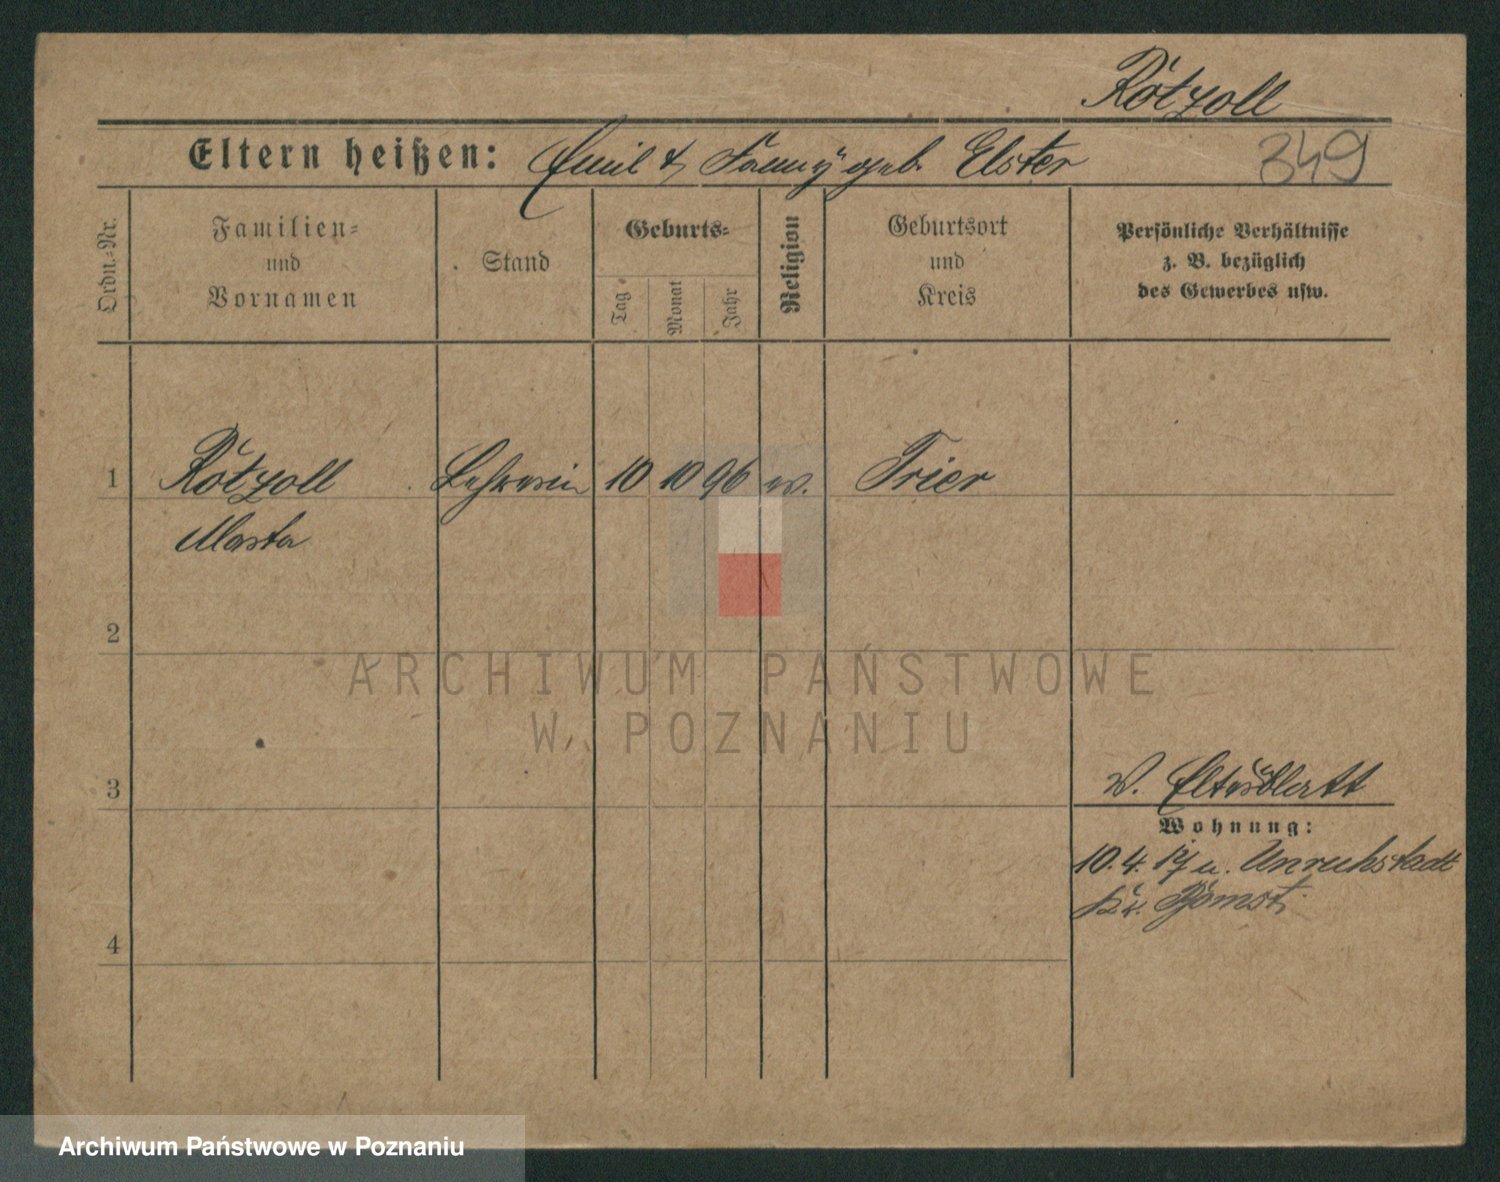 Rötzoll
Eltern heißen: Emil & Fanny geb. Elster
349
Ordn.-Nr.
Familien-
und
Vornamen
Stand
Geburts-
Tag
Monat
Jahr
Religion
Geburtsort
und
Kreis
Persönliche Verhältnisse
z. B. bezüglich
des Gewerbes usw.
1 Rötzoll Lehrerin 10 10 96 ev. Trier
Marta
2
ARCHIWUM PAŃSTWOWE
W POZNANIU
3
Wohnung:
10. 4. 17 u. Unruhstadt
Kr. Bomst.
4
Archiwum Państwowe w Poznaniu